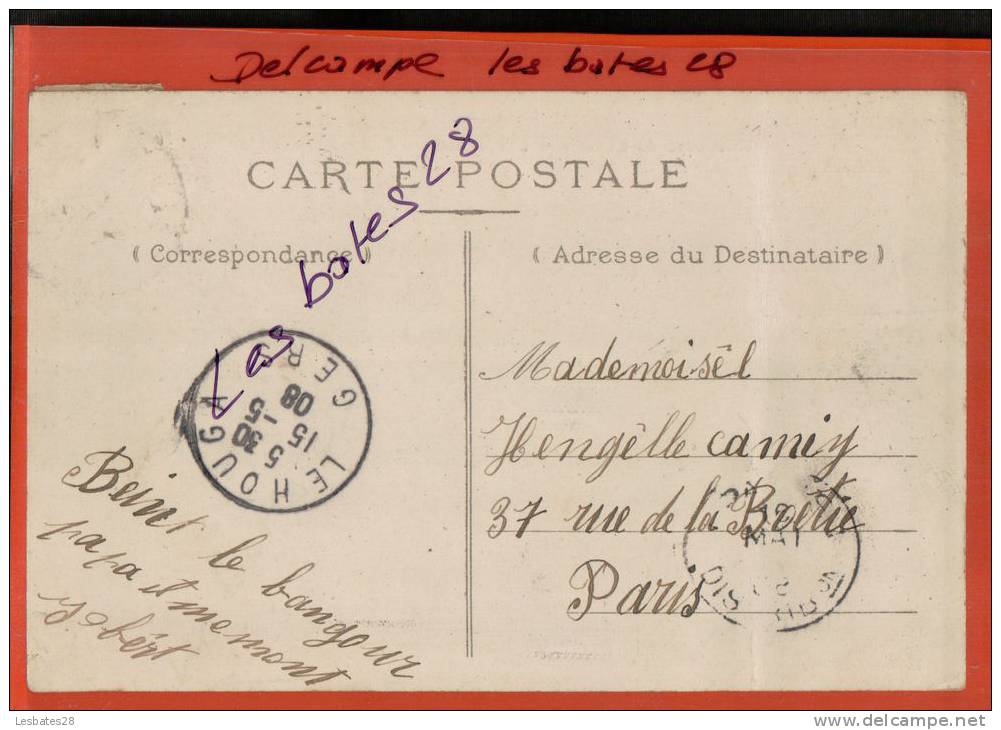 Delcampe les bates 28
CARTE POSTALE
Les bates 28
( Correspondance )
( Adresse du Destinataire )
LE HOUGA
GERS
5 30
15 -5
08
Mademoisêl
Hengêlle camiy
37 rue de la Boetie
Paris
MAI
Beint le bangour
papa it memont
Lesbates28
www.delcampe.net